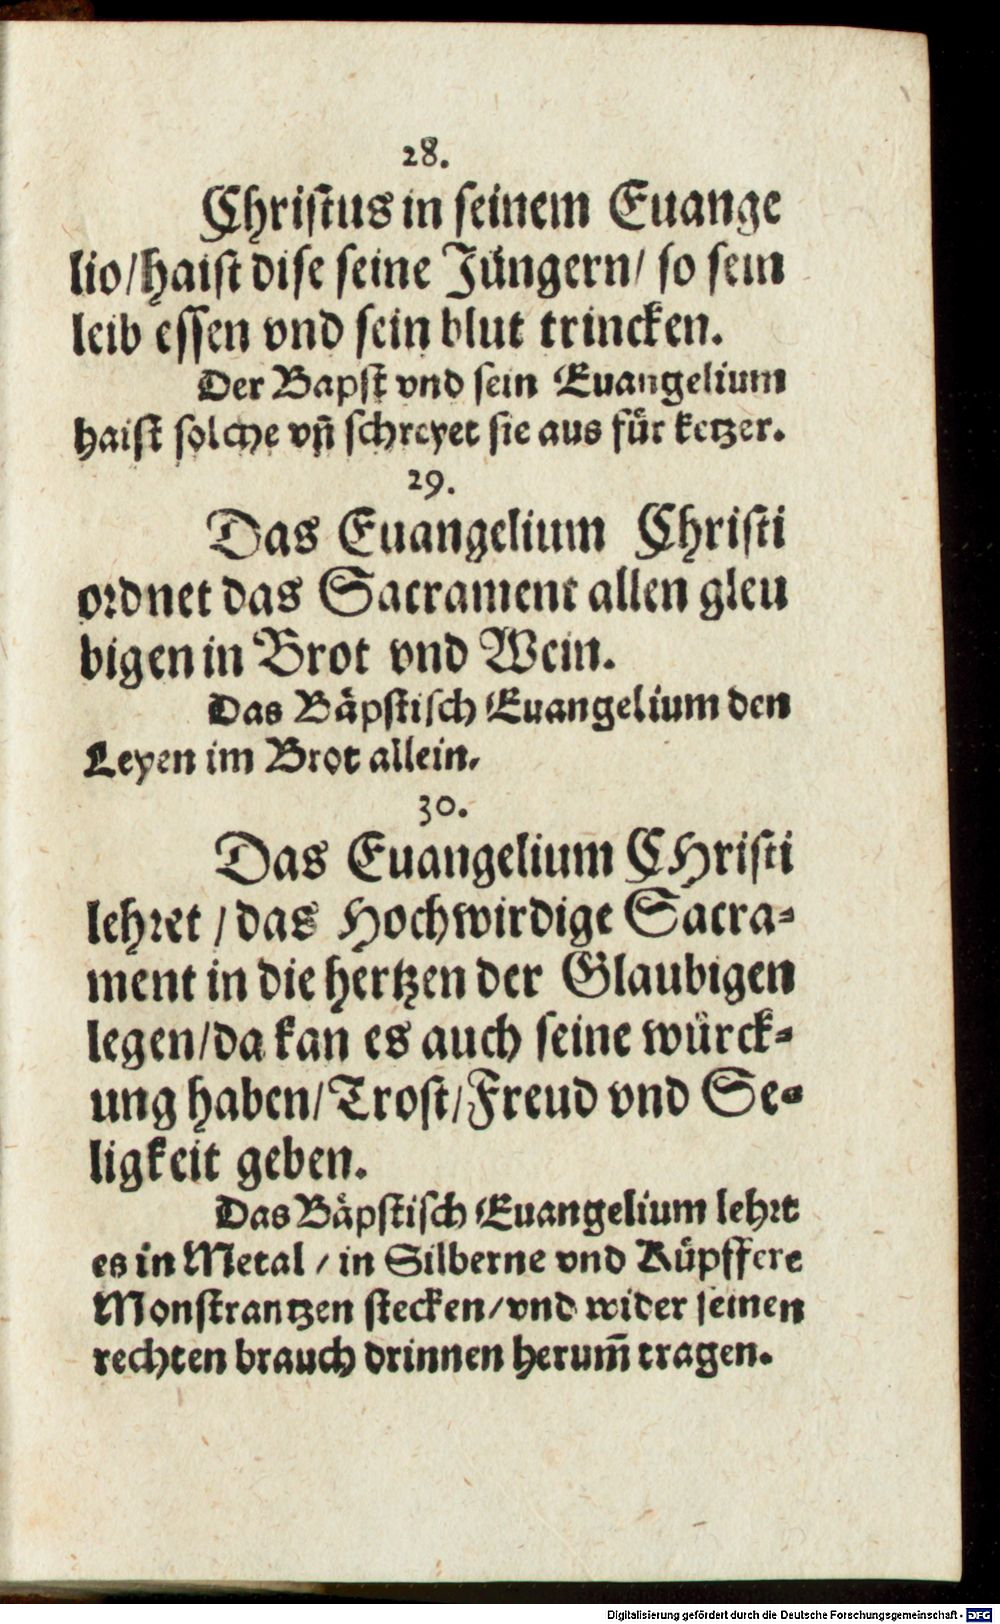 28.
Christus in seinem Euange
lio/haist dise seine Jüngern/ so sein
leib essen vnd sein blut trincken.
Der Bapst vnd sein Euangelium
haist solche vñ schreyet sie aus für ketzer.
29.
Das Euangelium Christi
ordnet das Sacrament allen gleu
bigen in Brot vnd Wein.
Das Bäpstisch Euangelium den
Leyen im Brot allein.
30.
Das Euangelium CHristi
lehret / das Hochwirdige Sacra-
ment in die hertzen der Glaubigen
legen/da kan es auch seine würck-
ung haben/Trost/Freud vnd Se-
ligkeit geben.
Das Bäpstisch Euangelium lehrt
es in Metal / in Silberne vnd Küpffere
Monstrantzen stecken/vnd wider seinen
rechten brauch drinnen herum̃ tragen.
Digitalisierung gefördert durch die Deutsche Forschungsgemeinschaft - DFG